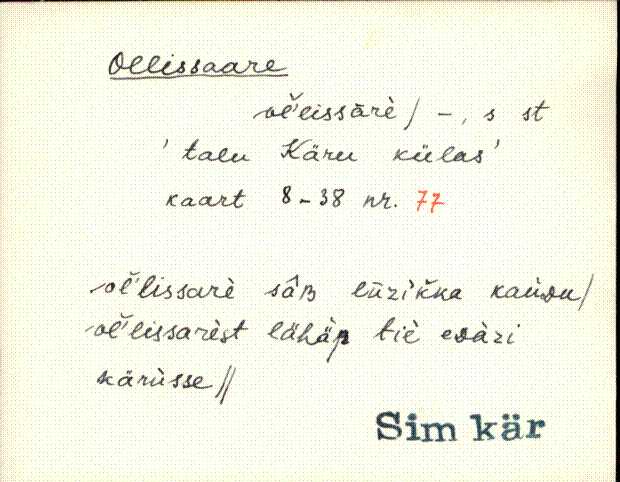 Ollissaare
ol̆'lissārè / –, s st
'talu Käru külas'
kaart 8-38 nr. 77
ol̆'lissarè sâʙ lūzìk̆ka kaùᴅu /
ol̆'lissarèst lähäp tiè eᴅàzi
kärùsse //
Sim kär